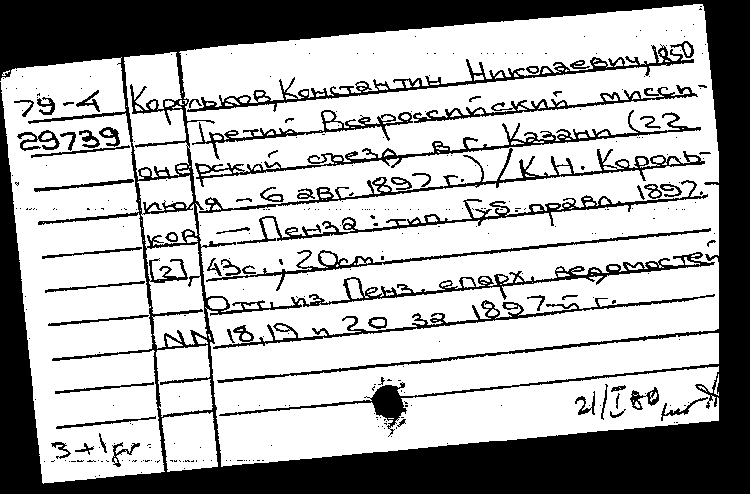 79-4 Корольков, Константин Николаевич, 1850
29739 Третий Всероссийский мисси-
онерский съезд в г. Казани (22
июля - 6 авг. 1897 г.) / К.Н. Король-
ков. — Пенза : тип. Губ. правл., 1897.-
[2], 43с. ; 20см.
Отт. из Пенз. епарх. ведомостей
NN 18,19 и 20 за 1897-й г.
21/I 80
3+1